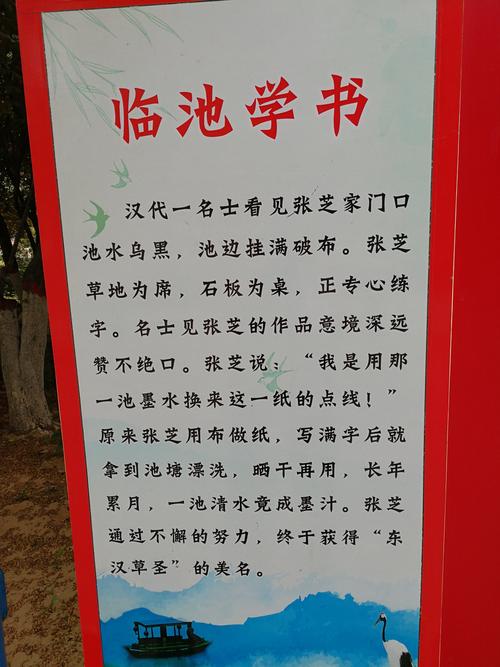 临池学书
汉代一名士看见张芝家门口
池水乌黑，池边挂满破布。张芝
草地为席，石板为桌，正专心练
字。名士见张芝的作品意境深远
赞不绝口。张芝说：“我是用那
一池墨水换来这一纸的点线！”
原来张芝用布做纸，写满字后就
拿到池塘漂洗，晒干再用，长年
累月，一池清水竟成墨汁。张芝
通过不懈的努力，终于获得“东
汉草圣”的美名。